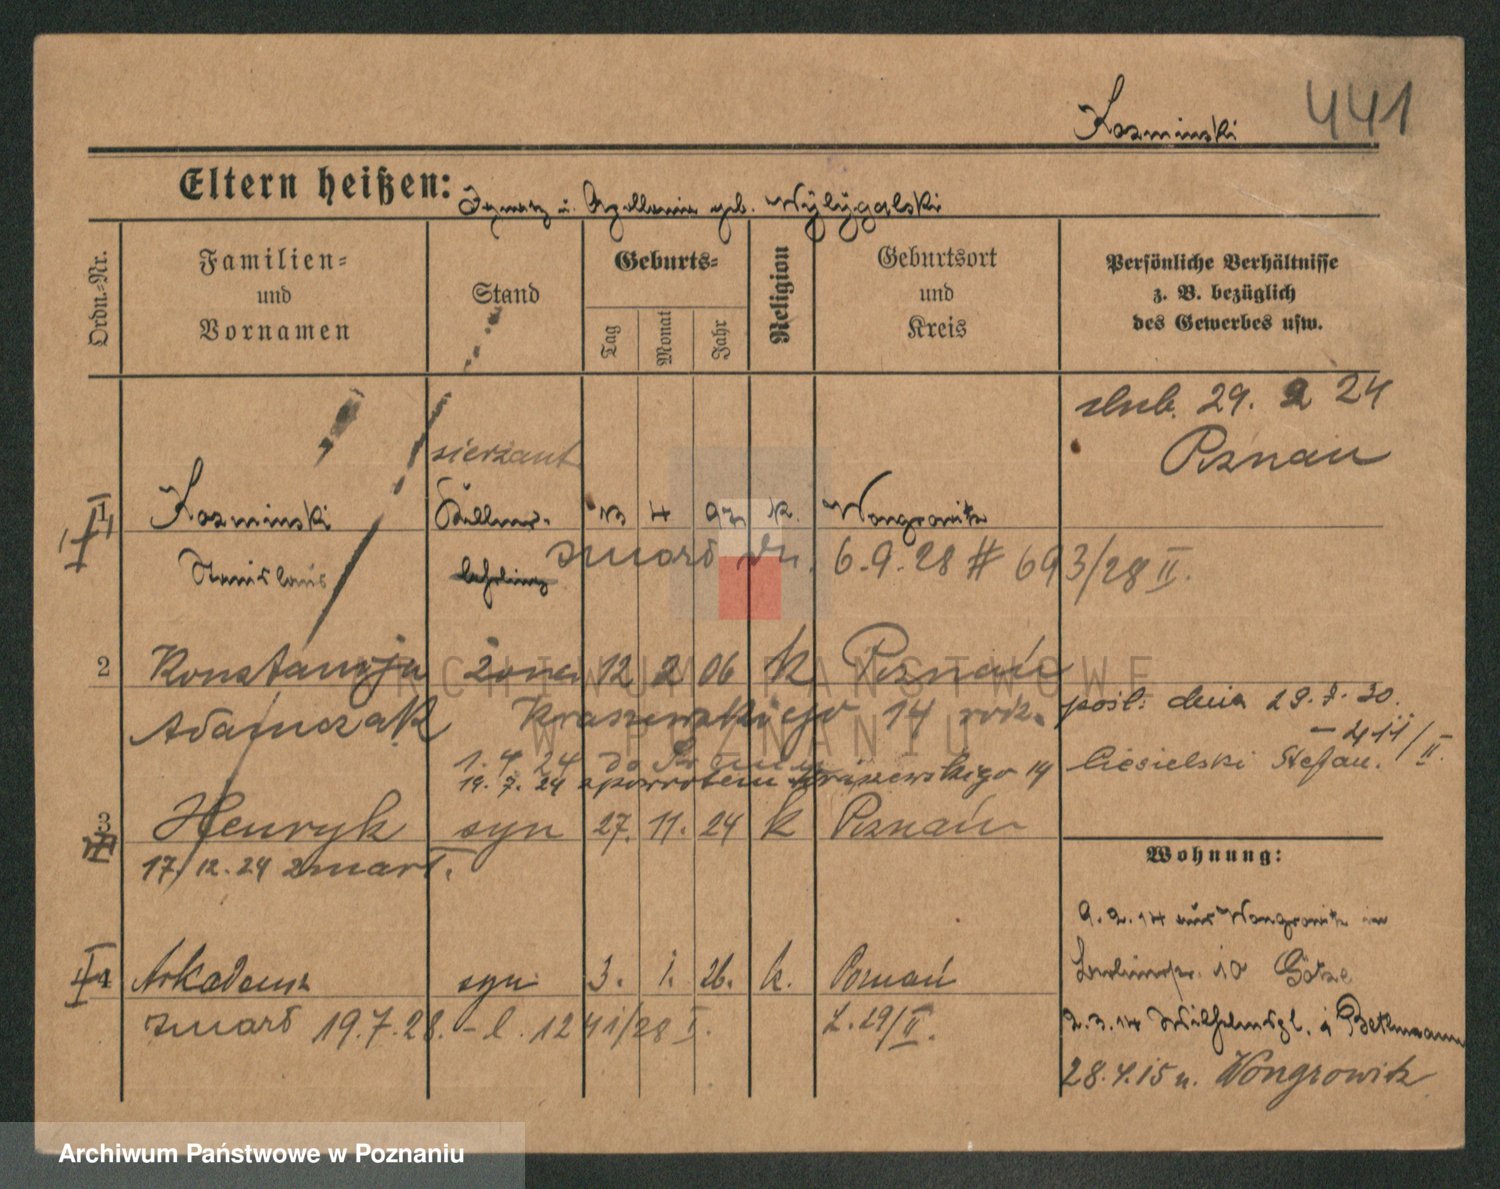 441
Kozminski
Eltern heißen: Ignatz u. Apollonia geb. Wylygalski
Ordn.-Nr.
Familien-
und
Vornamen
Stand
Geburts-
Tag
Monat
Jahr
Religion
Geburtsort
und
Kreis
Persönliche Verhältnisse
z. B. bezüglich
des Gewerbes usw.
ślub. 29. 2 24
Poznań
sierżant
1 Kozminski 13 4 97 k. Wongrowitz
Stanislaus lehrling
zmarł dn. 6.9.28 # 693/28 II.
2 Konstancja żona 12 2 06 k Poznań
Adamczak Kraszewskiego 14
pośl. dnia 29.7.30.
- 411/II.
Ciesielski Stefan.
1. 4 24 do
19. 7. 24 zpowrotem Kraszewskiego 14
3 Henryk syn 27. 11. 24 k Poznań
17/12.24 zmarł.
Wohnung:
9.2.14 aus Wongrowitz in
10 Götze
4 Arkadeusz syn 3. 1. 26. k. Poznań
zmarł 19.7.28. - l. 1241/28 I.
L. 29/II.
2.3.14 Wilhelmspl. Bethmann
28.4.15 n. Wongrowitz
ARCHIWUM PAŃSTWOWE
W POZNANIU
Archiwum Państwowe w Poznaniu